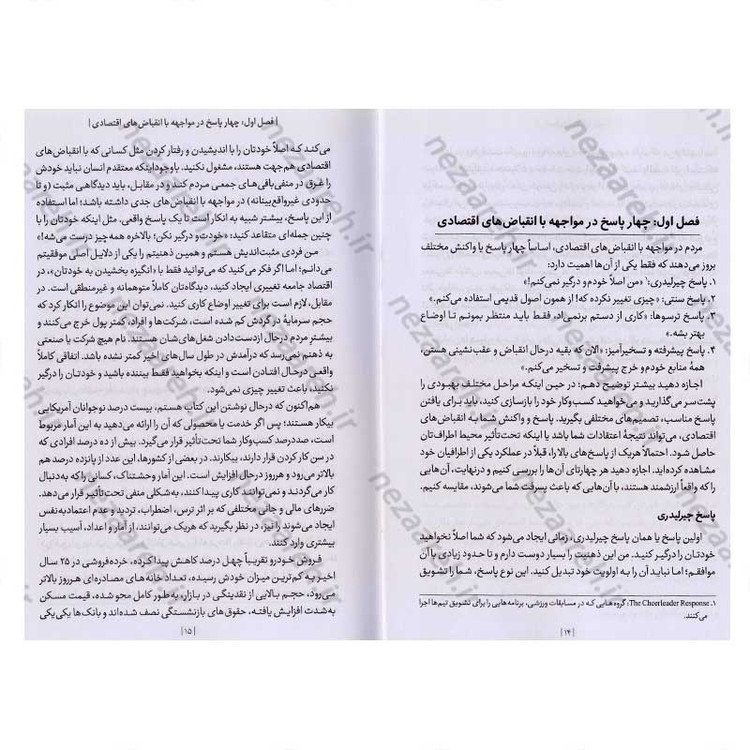 فصل اول: چهار پاسخ در مواجهه با انقباض‌های اقتصادی
مردم در مواجهه با انقباض‌های اقتصادی، اساساً چهار پاسخ یا واکنش مختلف
بروز می‌دهند که فقط یکی از آن‌ها اهمیت دارد:
۱. پاسخ چیرلیدری:۱ «من اصلاً خودم و درگیر نمی‌کنم!»
۲. پاسخ سنتی: «چیزی تغییر نکرده که! از همون اصول قدیمی استفاده می‌کنم.»
۳. پاسخ ترسوها: «کاری از دستم برنمی‌اد، فقط باید منتظر بمونم تا اوضاع
بهتر بشه.»
۴. پاسخ پیشرفته و تسخیرآمیز: «الان که بقیه درحال انقباض و عقب‌نشینی هستن،
همهٔ منابع خودم و خرج پیشرفت و تسخیر می‌کنم.»
اجازه دهید بیشتر توضیح دهم: در حین اینکه مراحل مختلف بهبودی را
پشت‌سر می‌گذارید و می‌خواهید کسب‌وکار خود را بازسازی کنید، باید برای یافتن
پاسخ مناسب، تصمیم‌های مختلفی بگیرید. پاسخ و واکنش شما به انقباض‌های
اقتصادی، می‌تواند نتیجهٔ اعتقادات شما باشد یا اینکه تحت‌تأثیر محیط اطراف‌تان
حاصل شود. احتمالاً هریک از پاسخ‌های بالا را، قبلاً در عملکرد یکی از اطرافیان خود
مشاهده کرده‌اید. اجازه دهید هر چهارتای آن‌ها را بررسی کنیم و درنهایت، آن‌هایی
را که واقعاً ارزشمند هستند، با آن‌هایی که باعث پسرفت شما می‌شوند، مقایسه کنیم.
پاسخ چیرلیدری
اولین پاسخ یا همان پاسخ چیرلیدری، زمانی ایجاد می‌شود که شما اصلاً نخواهید
خودتان را درگیر کنید. من این ذهنیت را بسیار دوست دارم و تا حدود زیادی با آن
موافقم؛ اما نباید آن را به اولویت خود تبدیل کنید. این نوع پاسخ، شما را تشویق
۱. The Cheerleader Response: گروه‌هایی که در مسابقات ورزشی، برنامه‌هایی را برای تشویق تیم‌ها اجرا
می‌کنند.
| ۱۴ |
| فصل اول: چهار پاسخ در مواجهه با انقباض‌های اقتصادی |
می‌کند که اصلاً خودتان را با اندیشیدن و رفتار کردن مثل کسانی که با انقباض‌های
اقتصادی هم‌جهت هستند، مشغول نکنید. باوجوداینکه معتقدم انسان نباید خودش
را غرق در منفی‌بافی‌های جمعی مردم کند و در مقابل، باید دیدگاهی مثبت (و تا
حدودی غیرواقع‌بینانه) در مواجهه با انقباض‌های جدی داشته باشد؛ اما استفاده
از این پاسخ، بیشتر شبیه به انکار است تا یک پاسخ واقعی. مثل اینکه خودتان را با
چنین جمله‌ای متقاعد کنید: «خودت و درگیر نکن! بالاخره همه‌چیز درست می‌شه!»
من فردی مثبت‌اندیش هستم و همین ذهنیتم را یکی از دلایل اصلی موفقیتم
می‌دانم؛ اما اگر فکر می‌کنید که می‌توانید فقط با «انگیزه بخشیدن به خودتان»، در
اقتصاد جامعه تغییری ایجاد کنید، دیدگاه‌تان کاملاً متوهمانه و غیرمنطقی است. در
مقابل، لازم است برای تغییر اوضاع کاری کنید. نمی‌توان این موضوع را انکار کرد که
حجم سرمایهٔ در گردش کم شده است، شرکت‌ها و افراد، کمتر پول خرج می‌کنند و
بیشترِ مردم درحال ازدست‌دادن شغل‌های‌شان هستند. نام هیچ شرکت یا صنعتی
به ذهنم نمی‌رسد که درآمدش در طول سال‌های اخیر کمتر نشده باشد. اتفاقی کاملاً
واقعی درحال افتادن است و اینکه بخواهید فقط بیننده باشید و خودتان را درگیر
نکنید، باعث تغییر چیزی نمی‌شود.
هم‌اکنون که درحال نوشتن این کتاب هستم، بیست درصد نوجوانان آمریکایی
بیکار هستند؛ پس اگر خدمت یا محصولی که آن را ارائه می‌دهید به این آمار مربوط
است، صددرصد کسب‌وکار شما تحت‌تأثیر قرار می‌گیرد. بیش از ده درصد افرادی که
در سن کار کردن قرار دارند، بیکارند. در بعضی از کشورها، این عدد از پانزده درصد هم
بالاتر می‌رود و هرروز درحال افزایش است. این آمار وحشتناک، کسانی را که به‌دنبال
کار می‌گردند و نمی‌توانند کاری پیدا کنند، به‌شکلی منفی تحت‌تأثیر قرار می‌دهد.
ضررهای مالی و جانی مختلفی که بر اثر ترس، اضطراب، تردید و عدم اعتمادبه‌نفس
ایجاد می‌شوند را نیز، در نظر بگیرید که هریک می‌توانند، از آمار و اعداد، آسیب بسیار
بیشتری وارد کنند.
فروش خودرو تقریباً چهل درصد کاهش پیدا کرده، خرده‌فروشی در ۲۵ سال
اخیر به کم‌ترین میزان خودش رسیده، تعداد خانه‌های مصادره‌ای هرروز بالاتر
می‌رود، حجم بالایی از نقدینگی در بازار، به‌طور کامل محو شده، قیمت مسکن
به‌شدت افزایش یافته، حقوق‌های بازنشستگی نصف شده‌اند و بانک‌ها یکی‌یکی
| ۱۵ |
nezaareh.ir